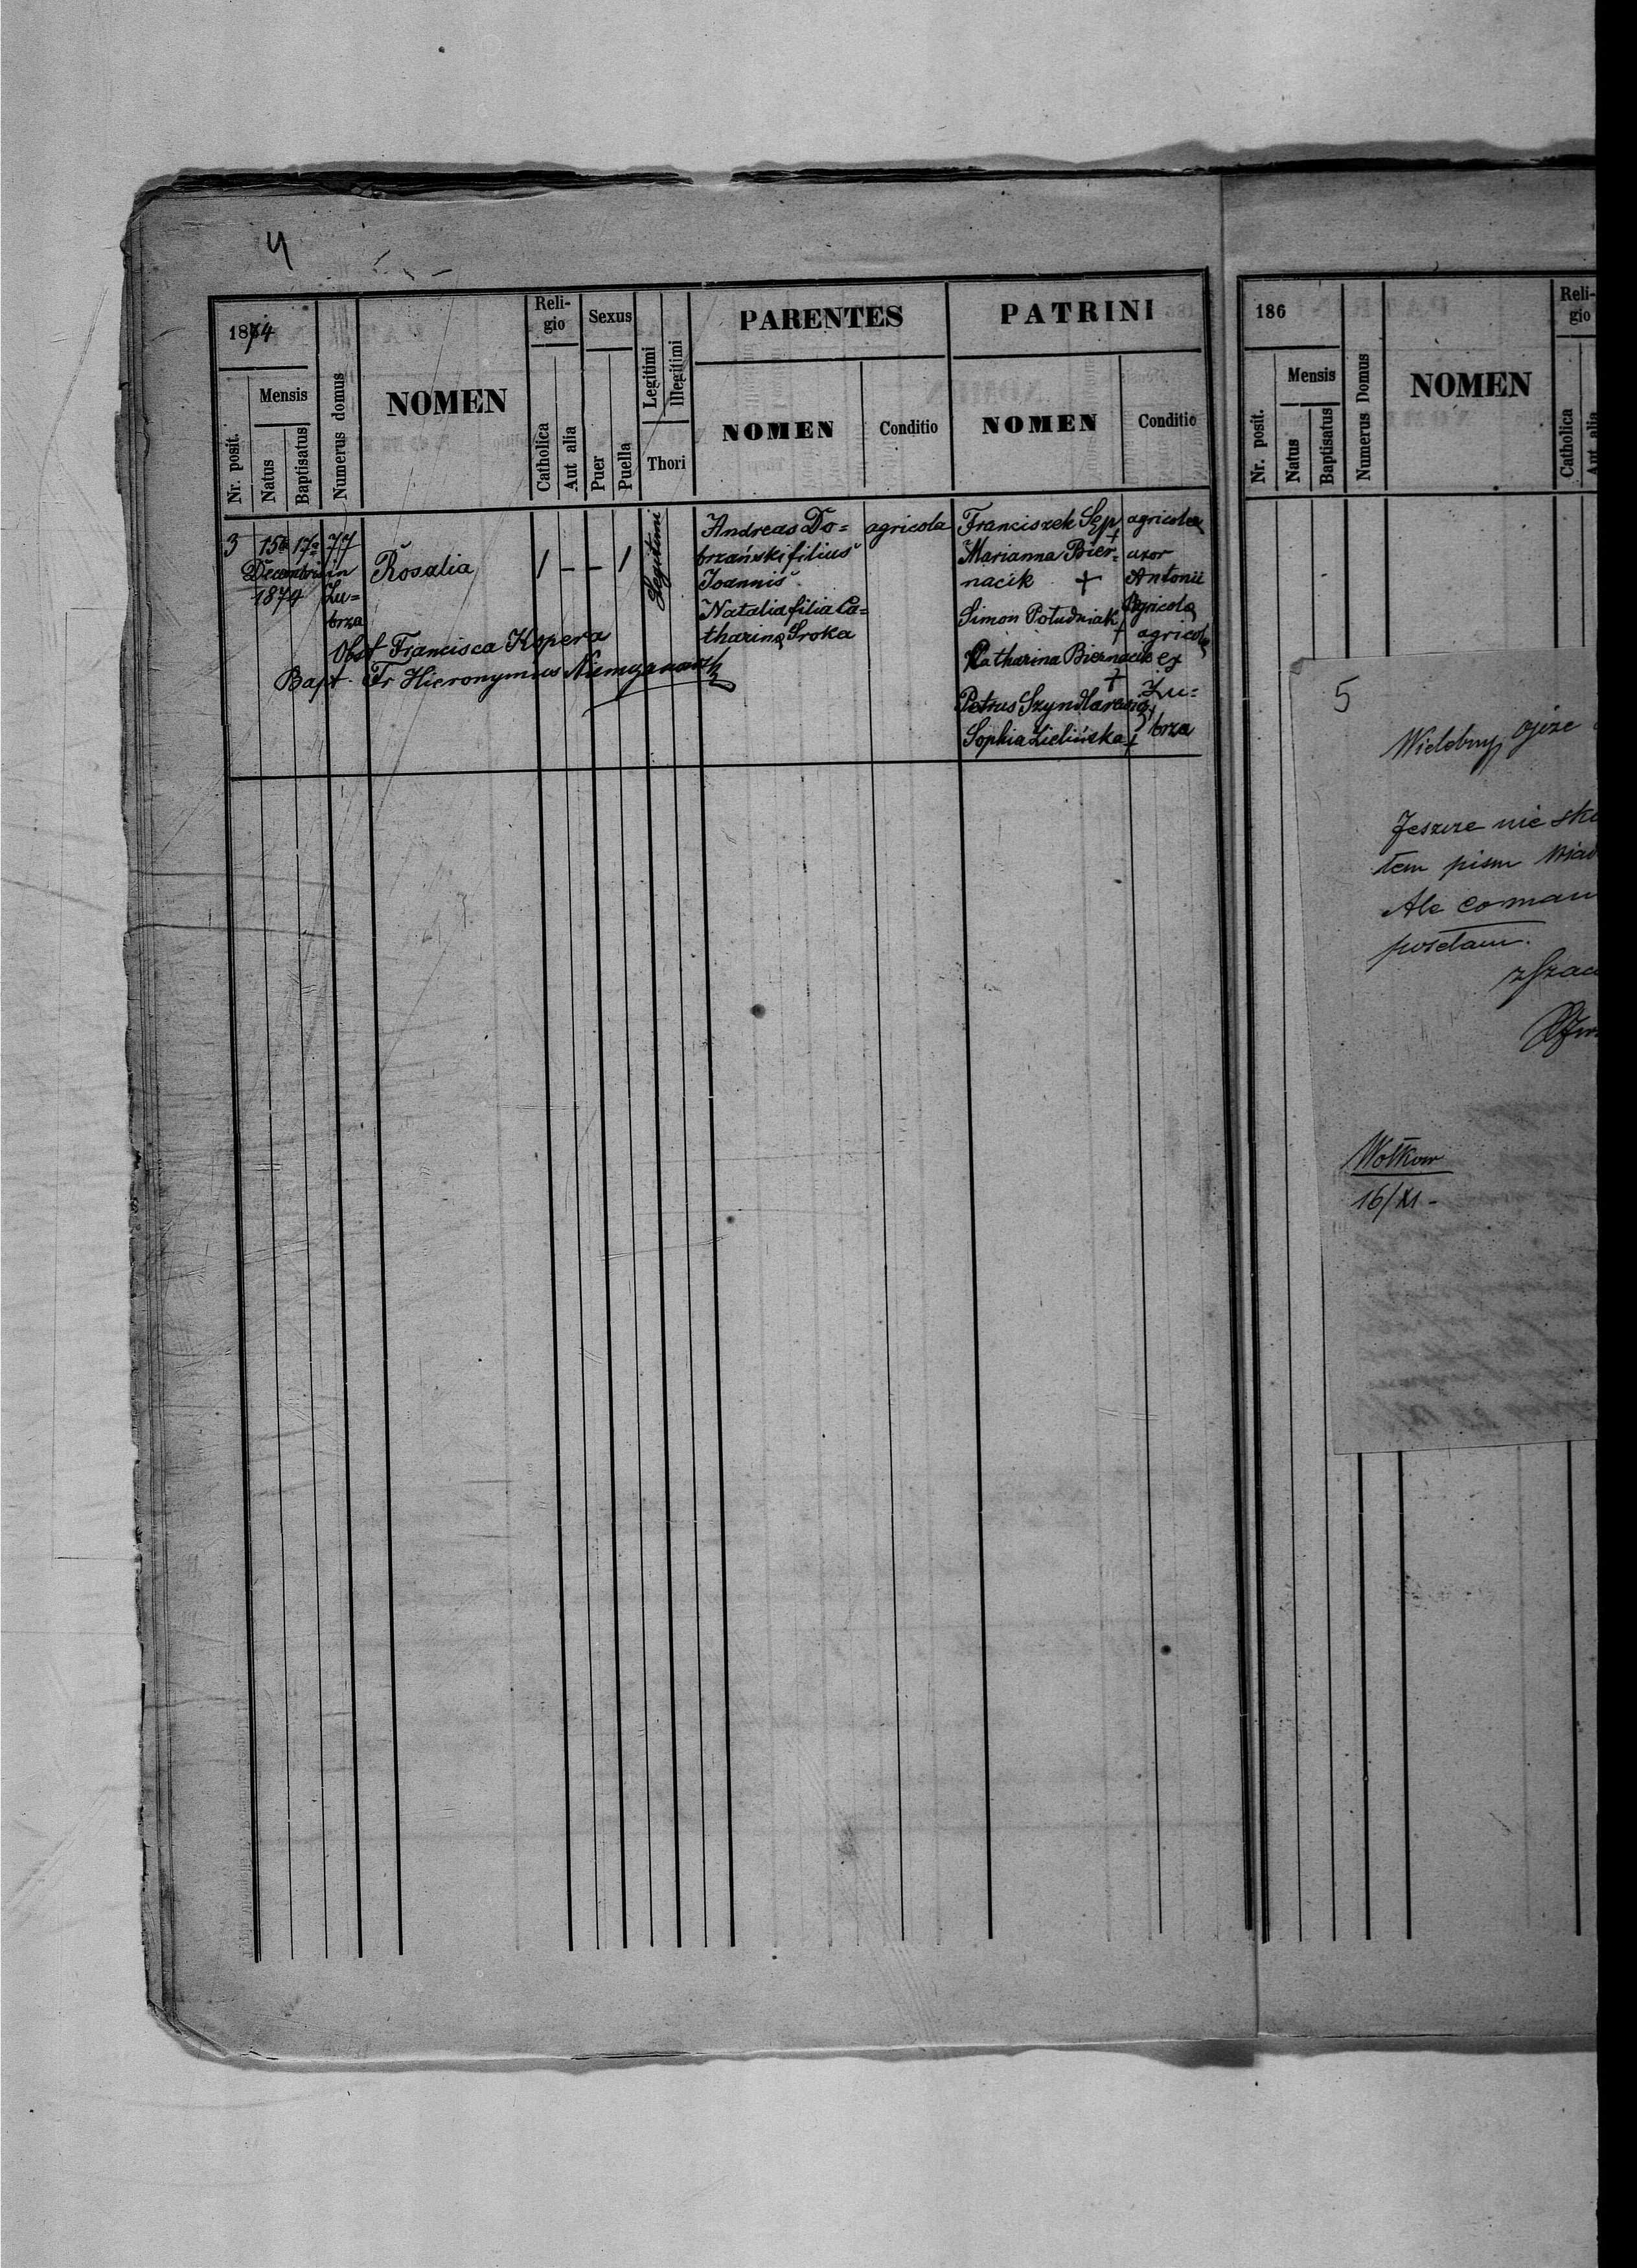 4
1874
Nr. posit.
Mensis
Natus
Baptisatus
Numerus domus
NOMEN
Reli-
gio
Catholica
Aut alia
Sexus
Puer
Puella
Legitimi
Illegitimi
Thori
PARENTES
NOMEN
Conditio
PATRINI
NOMEN
Conditio
3
15ta 17a
Decembris
1874
77
in
Zu=
brza
Rosalia
/ - - /
Legitimi
Andreas Do=
brzański filius
Joannis
Natalia filia Ca=
tharina Sroka
agricola
Franciszek Sęp
Marianna Bier-
nacik +
Simon Południak +
Katharina Biernacik ex
Petrus
Sophia Zielińska +
agricola
uxor
Antonii
agricola
agricola
Zu=
brza
Obst Francisca Kopera
Bapt. Fr Hieronymus
186
Nr. posit.
Mensis
Natus
Baptisatus
Numerus Domus
NOMEN
Reli-
gio
Catholica
Aut alia
5
Wielebny ojcze
Jeszcze nie
tem pism
Ale co mam
posełam.
Wołkow
16/XI -